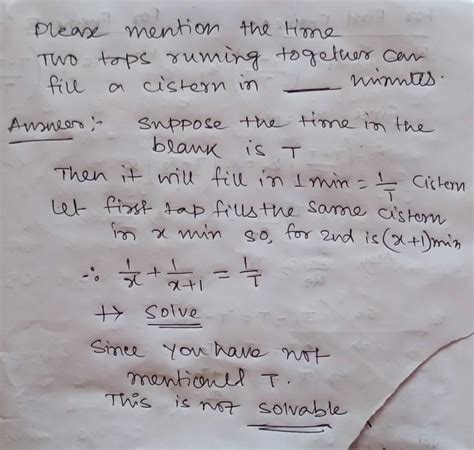 Please mention the time
Two taps runing together can
fill a cistern in ____ minutes.
Answer:- Suppose the time in the
blank is T
Then it will fill in 1 min = 1/T Cistern
Let first tap fills the same cistern
in x min so, for 2nd is (x+1) min
∴ 1/x + 1/x+1 = 1/T
↦ Solve
Since you have not
mentioned T.
This is not solvable